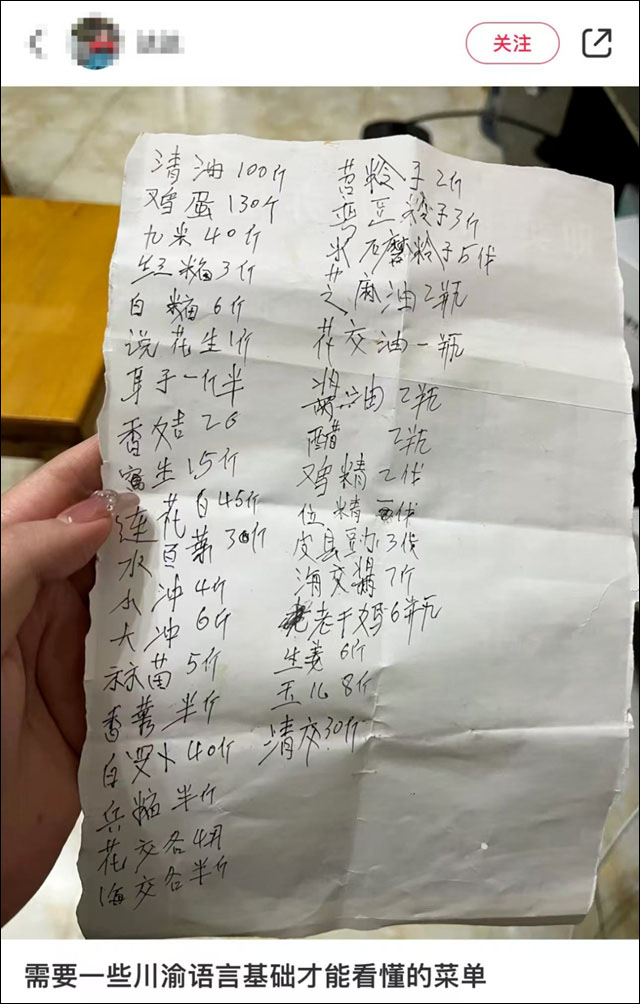 关注
清油100斤
鸡蛋130个
九米40斤
丝糖3斤
白糖6斤
说花生1斤
耳子一斤半
香 26
生15斤
连花白45斤
水豆 30斤
小冲4斤
大冲6斤
苗5斤
香 半斤
白罗卜40斤
兵糖半斤
花交各4两
海交各半斤
苕粉子2斤
豆粉子3斤
米石磨粉子5代
芝麻油2瓶
花交油一瓶
酱油2瓶
醋 2瓶
鸡精2代
位精 代
皮县豆办3代
海交酱7斤
老干妈6瓶
生姜6斤
玉儿8斤
清交30斤
需要一些川渝语言基础才能看懂的菜单